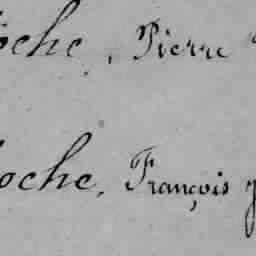 oche, Pierre
oche, François